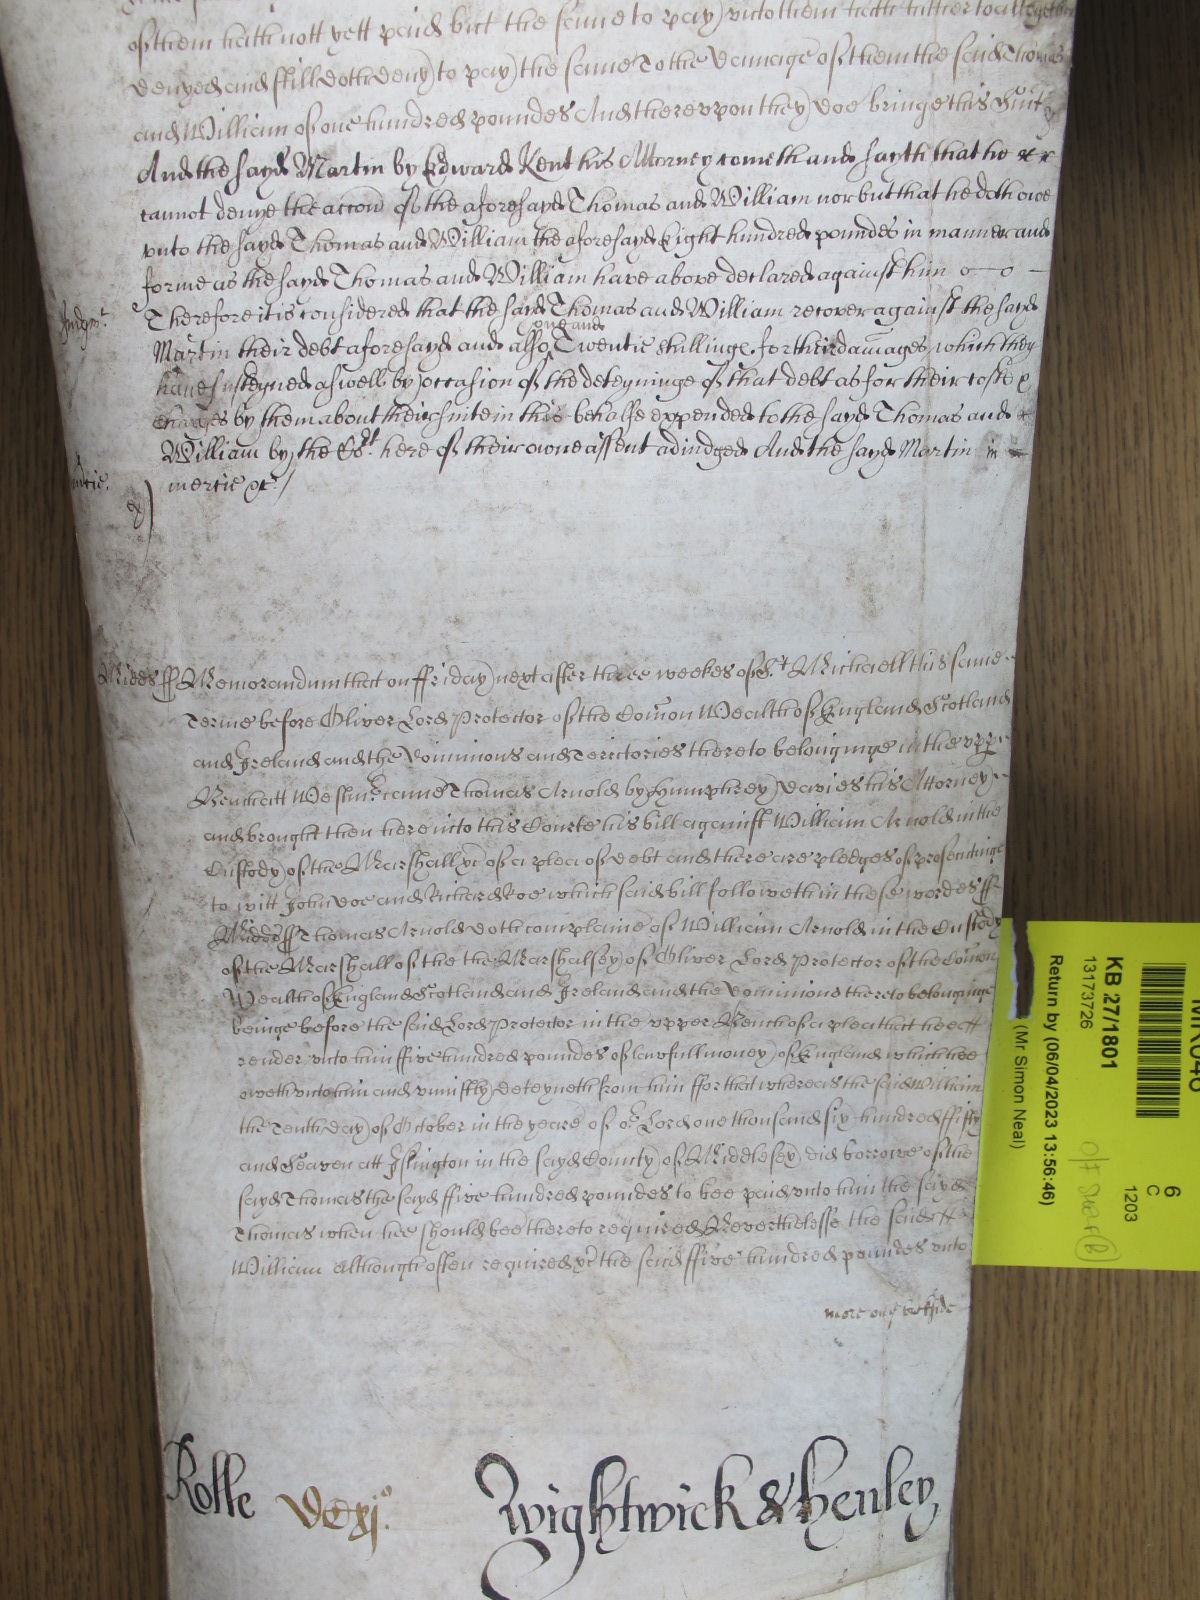 of them hath nott yett paid but the same to pay unto them hath hitherto altogether
denyed and still doth deny to pay the same To the damage of them the said Thomas
and William of one hundred poundes And thereupon they doe bringe this Suit &c
And the sayd Martin by Edward Kent his Attorney cometh and sayth that he
cannot denye the accon of the aforesayd Thomas and William nor but that he doth owe
unto the sayd Thomas and William the aforesayd Eight hundred poundes in manner and
forme as the sayd Thomas and William have above declared against him
Judgmt. Therefore it is considered that the sayd Thomas and William recover against the sayd
one and
Martin their debt aforesayd and also Twentie shillinge for their damages which they
have susteyned aswell by occasion of the deteyninge of that debt as for their coste &
charges by them about their suite in this behalfe expended to the sayd Thomas and
William by the Cort. here of their owne assent adiudged And the sayd Martin in
mercie &c
Midds ss Memorandum that on ffriday next after three weekes of St. Michaell this same
Terme before Oliver Lord Protector of the Comon Wealth of England Scotland
and Ireland and the Dominions and Territories thereto belonginge in the upper
Bench att Westmr. came Thomas Arnold by Humphrey Davies his Attorney
and brought then here into this Courte his bill against William Arnold in the
Custody of the Marshall &c of a plea of debt and there are pledges of prosecutinge
to witt John Doe and Richard Roe which said bill followeth in these wordes ss
Midds ss Thomas Arnold doth complaine of William Arnold in the Custody
of the Marshall of the the Marshalsey of Oliver Lord Protector of the Comon
Wealth of England Scotland and Ireland and the Dominions thereto belonginge
beinge before the said Lord Protector in the upper Bench of a plea that hee
render unto him ffive hundred poundes of lawfull money of England which hee
oweth unto him and uniustly deteyneth from him ffor that whereas the said William
the Tenth day of October in the yeare of or Lord one thousand six hundred ffifty
and Seaven att Islington in the sayd County of Middlesex did borrowe of the
sayd Thomas the sayd ffive hundred poundes to bee paid unto him the sayd
Thomas when hee should bee thereto required Neverthelesse the said
William although often required &c the said ffive hundred poundes unto
more on ye backside
Rolle Wightwick & Henley
KB 27/1801
13173726
Return by (06/04/2023 13:56:46)
(Mr Simon Neal)
6
C
1203